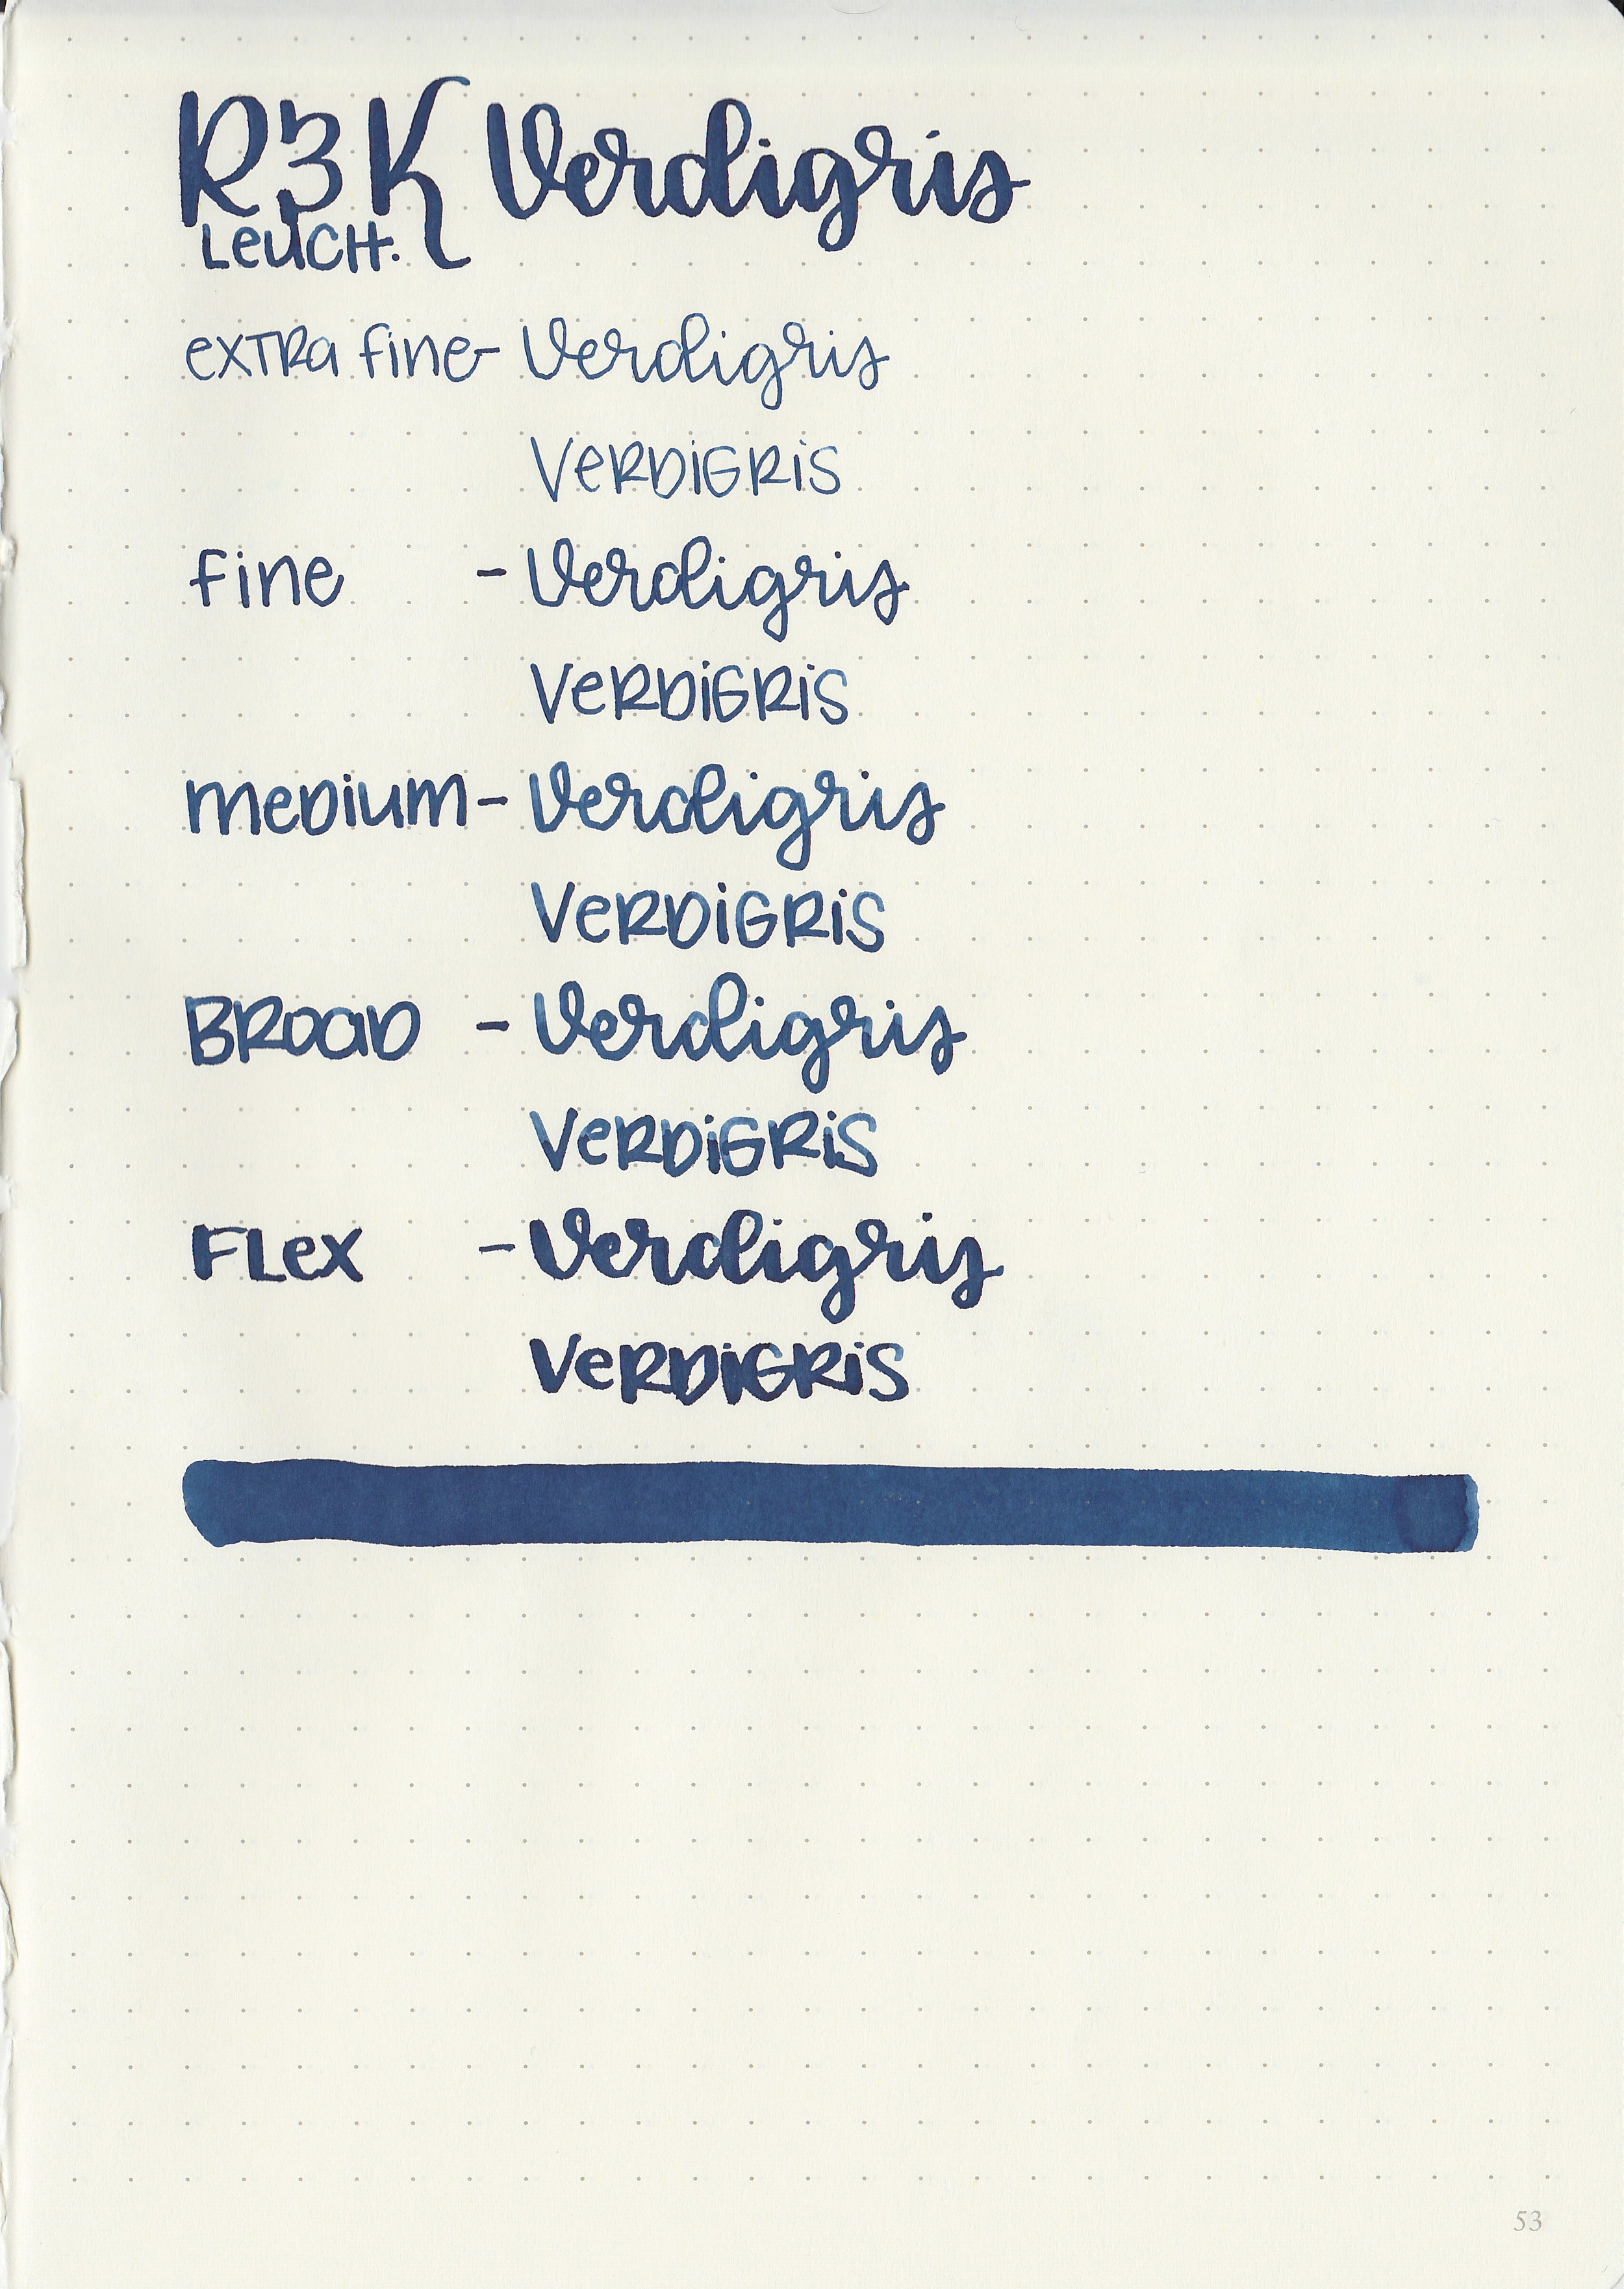 R3K Verdigris
Leuch.
extra fine - Verdigris
VeRDiGRiS
fine - Verdigris
VeRDiGRiS
meDium - Verdigris
VeRDiGRiS
BRoaD - Verdigris
VeRDiGRiS
FLex - Verdigris
VeRDiGRiS
53